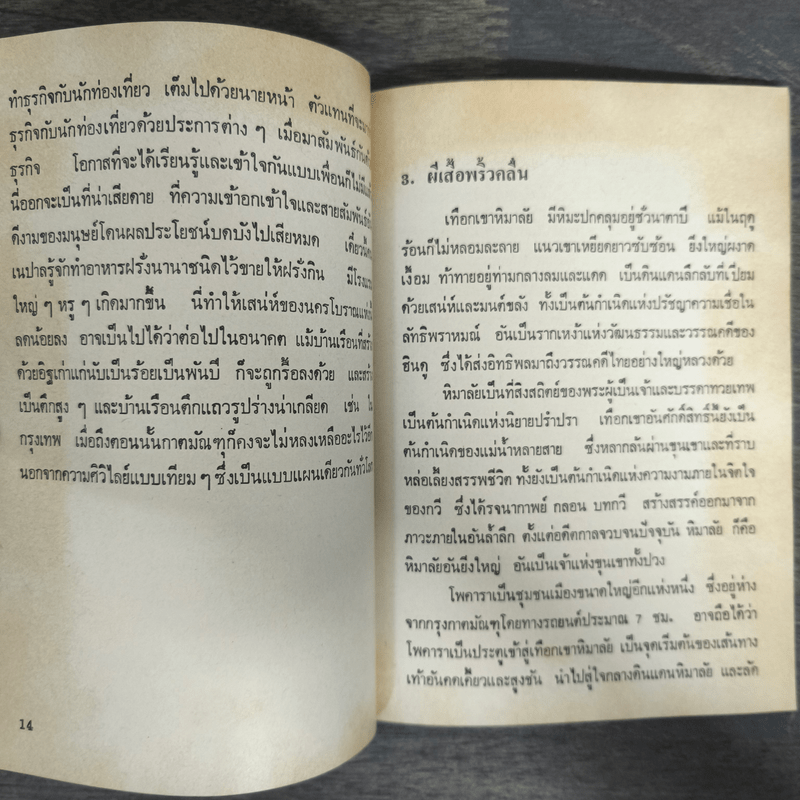 ทำธุรกิจกับนักท่องเที่ยว เต็มไปด้วยนายหน้า ตัวแทนที่จะมา
ธุรกิจกับนักท่องเที่ยวด้วยประการต่าง ๆ เมื่อมาสัมพันธ์กัน
ธุรกิจ โอกาสที่จะได้เรียนรู้และเข้าใจกันแบบเพื่อนก็ไม่มี
นี่ออกจะเป็นที่น่าเสียดาย ที่ความเข้าอกเข้าใจและสายสัมพันธ์
ดีงามของมนุษย์โดนผลประโยชน์บดบังไปเสียหมด เดี๋ยวนี้
เนปาลรู้จักทำอาหารฝรั่งนานาชนิดไว้ขายให้ฝรั่งกิน มีโรงแรม
ใหญ่ ๆ หรู ๆ เกิดมากขึ้น นี่ทำให้เสน่ห์ของนครโบราณ
ลดน้อยลง อาจเป็นไปได้ว่าต่อไปในอนาคต แม้บ้านเรือนที่สร้าง
ด้วยอิฐเก่าแก่นับเป็นร้อยเป็นพันปี ก็จะถูกรื้อลงด้วย และสร้าง
เป็นตึกสูง ๆ และบ้านเรือนตึกแถวรูปร่างน่าเกลียด เช่น ใน
กรุงเทพ เมื่อถึงตอนนั้นกาตมัณฑุก็คงจะไม่หลงเหลืออะไรไว้
นอกจากความศิวิไลย์แบบเทียม ๆ ซึ่งเป็นแบบแผนเดียวกันทั่วโลก
14
3. ผีเสื้อพริ้วคลื่น
เทือกเขาหิมาลัย มีหิมะปกคลุมอยู่ชั่วนาตาปี แม้ในฤดู
ร้อนก็ไม่หลอมละลาย แนวเขาเหยียดยาวซับซ้อน ยิ่งใหญ่ผงาด
เงื้อม ท้าทายอยู่ท่ามกลางลมและแดด เป็นดินแดนลึกลับที่เปี่ยม
ด้วยเสน่ห์และมนต์ขลัง ทั้งเป็นต้นกำเนิดแห่งปรัชญาความเชื่อใน
ลัทธิพราหมณ์ อันเป็นรากเหง้าแห่งวัฒนธรรมและวรรณคดีของ
ฮินดู ซึ่งได้ส่งอิทธิพลมาถึงวรรณคดีไทยอย่างใหญ่หลวงด้วย
หิมาลัยเป็นที่สิงสถิตย์ของพระผู้เป็นเจ้าและบรรดาทวยเทพ
เป็นต้นกำเนิดแห่งนิยายปรำปรา เทือกเขาอันศักดิ์สิทธิ์นี้ยังเป็น
ต้นกำเนิดของแม่น้ำหลายสาย ซึ่งหลากล้นผ่านขุนเขาและที่ราบ
หล่อเลี้ยงสรรพชีวิต ทั้งยังเป็นต้นกำเนิดแห่งความงามภายในจิตใจ
ของกวี ซึ่งได้รจนากาพย์ กลอน บทกวี สร้างสรรค์ออกมาจาก
ภาวะภายในอันล้ำลึก ตั้งแต่อดีตกาลจวบจนปัจจุบัน หิมาลัย ก็คือ
หิมาลัยอันยิ่งใหญ่ อันเป็นเจ้าแห่งขุนเขาทั้งปวง
โพคาราเป็นชุมชนเมืองขนาดใหญ่อีกแห่งหนึ่ง ซึ่งอยู่ห่าง
จากกรุงกาตมัณฑุโดยทางรถยนต์ประมาณ 7 ชม. อาจถือได้ว่า
โพคาราเป็นประตูเข้าสู่เทือกเขาหิมาลัย เป็นจุดเริ่มต้นของเส้นทาง
เท้าอันคดเคี้ยวและสูงชัน นำไปสู่ใจกลางดินแดนหิมาลัย และลัด